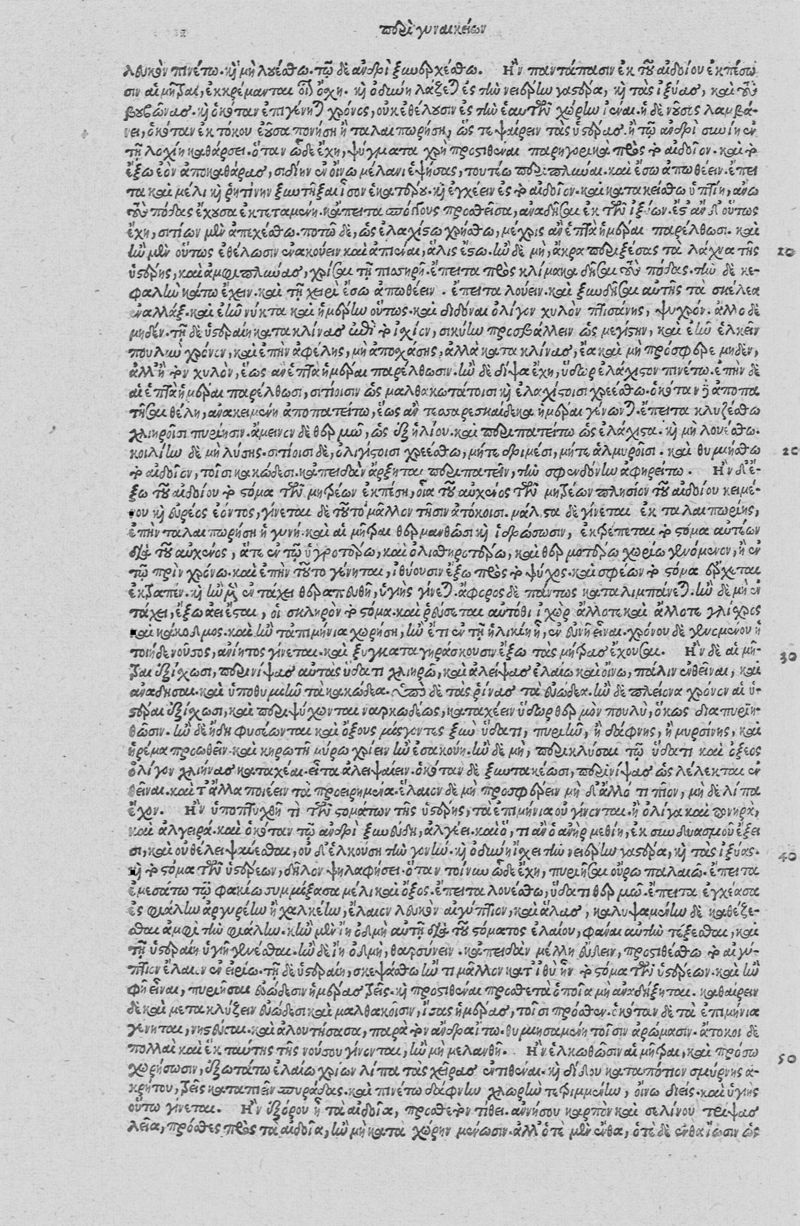 περὶ γυναικείων
λευκὸν πινέτω. καὶ μὴ λουέσθω. τῷ δὲ ἀνδρὶ ξυνερχέσθω. Ἢν παντάπασιν ἐκ τοῦ αἰδοίου ἐκπέσω
σιν αἱ μῆτραι, ἐκκρέμανται οἷον ὄσχη. καὶ ὀδύνη λάζεται ἐς τὴν νειαίρην γαστέρα, καὶ τὰς ἰξύας, καὶ τοὺς
βουβῶνας. καὶ ὁκόταν ἐπιγένηται χρόνος, οὐκ ἐθέλουσιν ἐς τὴν ἑαυτῶν χώρην ἰέναι. ἡ δὲ νοῦσος λαμβά-
νει, ὁκόταν ἐκ τόκου ἐοῦσα πονήσῃ ἢ ταλαιπωρήσῃ, ὥς τε ψαύειν τὰς ὑστέρας. ἢ τῷ ἀνδρὶ συνίῃ ἐν
τῇ λοχίῃ καθάρσει. ὅταν ὧδε ἔχῃ, ψύγματα χρὴ προστιθέναι παρηγορικὰ πρὸς τὸ αἰδοῖον. καὶ τὸ
ἔξω ἐὸν ἀποκαθάρας, σίδην ἐν οἴνῳ μέλανι ἑψήσας, τουτέῳ περιπλῦναι. καὶ ἔσω ἀπωθέειν. ἔπει
τα καὶ μέλι καὶ ῥητίνην ξυντῆξαι ἴσον ἑκατέρου. καὶ ἐγχέειν ἐς τὸ αἰδοῖον. καὶ κατακείσθω ὑπτίη, ἄνω
τοὺς πόδας ἔχουσα ἐκτεταμένη. κἄπειτα σπόγγους προσθεῖσα, ἀναδῆσαι ἐκ τῶν ἰξύων. ἔστ' ἂν δ' οὕτως
ἔχῃ, σιτίων μὲν ἀπεχέσθω. ποτῷ δὲ, ὡς ἐλαχίστῳ χρήσθω, μέχρις ἂν ἑπτὰ ἡμέραι παρέλθωσι. καὶ
ἢν μὲν οὕτως ἐθέλωσιν ἐνακούειν καὶ ἀπιέναι, ἅλις ἔστω. ἢν δὲ μὴ, ἄκρα περιξέσας τὰ λάχνια τῆς
10
ὑστέρης, καὶ ἀμφιπλύνας, χρῖσαι τῇ πισηρῇ. ἔπειτα πρὸς κλίμακα δῆσαι τοὺς πόδας. τὴν δὲ κε-
φαλὴν κάτω ἔχειν. καὶ τῇ χειρὶ ἔσω ἀπωθέειν. ἔπειτα λούειν. καὶ ξυνδῆσαι αὐτῆς τὰ σκέλεα
ἐναλλάξ. καὶ ἐῆν νύκτα καὶ ἡμέρην οὕτως. καὶ διδόναι ὀλίγον χυλὸν πτισάνης, ψυχρόν. ἄλλο δὲ
μηδέν. τῇ δὲ ὑστεραίῃ κατακλίνας ἐπὶ τὸ ἰσχίον, σικύην προσβάλλειν ὡς μεγίστην, καὶ ἐῆν ἕλκειν
πουλὺν χρόνον, καὶ ἐπὴν ἀφέλῃς, μὴ ἀποσχάσῃς, ἀλλὰ κατακλίνας, ἔα καὶ μὴ πρόσφερε μηδὲν,
ἀλλ' ἢ τὸν χυλὸν, ἕως ἂν ἑπτὰ ἡμέραι παρέλθωσιν. ἢν δὲ δίψα ἔχῃ, ὕδωρ ἐλάχιστον πινέτω. ἐπὴν δὲ
αἱ ἑπτὰ ἡμέραι παρέλθωσι, σιτίοισιν ὡς μαλθακωτάτοισι καὶ ἐλαχίστοισι χρεέσθω. ὁκόταν δὲ ἀποπα
τῆσαι θέλῃ, ἀνακειμένη ἀποπατείτω, ἕως ἂν τεσσαρεσκαίδεκα ἡμέραι γένωνται. ἔπειτα κλυζέσθω
χλιηροῖσι πυρίῃσιν. ἄμεινον δὲ θερμῷ, ὡς ἐξ ἡλίου. καὶ περιπατείτω ὡς ἐλάχιστα. καὶ μὴ λουέσθω.
κοιλίην δὲ μὴ λύσῃς. σιτίοισι δὲ, ὀλιγίστοισι χρεέσθω, μήτε δριμέσι, μήτε ἁλμυροῖσι. καὶ θυμιήσθω
20
τὸ αἰδοῖον, τοῖσι κακώδεσι. κἀπειδὰν ἄρξηται περιπατεῖν, τὴν σφενδόνην ἀφηρείτω. Ἢν δ' ἔ-
ξω τοῦ αἰδοίου τὸ στόμα τῶν μητρέων ἐκπέσῃ, οἷα τοῦ αὐχένος τῶν μητρέων πλησίον τοῦ αἰδοίου κειμέ-
νου καὶ εὐρέος ἐόντος, γίνεται δὲ τοῦτο μᾶλλον τῇσιν ἀτόκοισι. μάλιστα δὲ γίνεται ἐκ ταλαιπωρίης,
ἐπὴν ταλαιπωρήσῃ ἡ γυνὴ. καὶ αἱ μῆτραι θερμανθῶσι καὶ ἱδρώσωσιν, ἐκτρέπεται τὸ στόμα αὐτέων
διὰ τοῦ αὐχένος, ἅτε ἐν τῷ ὑγροτέρῳ, καὶ ὀλισθηροτέρῳ, καὶ θερμοτέρῳ χωρίῳ γενόμενον, ἢ ἐν
τῷ πρὶν χρόνῳ. καὶ ἐπὴν τοῦτο γένηται, ἰθύουσιν ἔξω πρὸς τὸ ψύχος. καὶ σφέων τὸ στόμα ἔρχεται
ἐκτραπέν. καὶ ἢν μὲν ἐν τάχει θεραπευθῇ, ὑγιὴς γίνεται. ἄφορος δὲ πάντως καταλιμπάνεται. ἢν δὲ μὴ ἐν
τάχει, ἔξω αἰεὶ ἔσται, οἱ σκληρὸν τὸ στόμα. καὶ ῥεύσεται αὐτόθι ἰχὼρ ἄλλοτε καὶ ἄλλοτε γλίσχρος
καὶ κάκοδμος. καὶ ἢν τἀπιμήνια χωρήσῃ, ἢν ἔτι ἐν τῇ ἡλικίῃ ᾖ, ἐν εὐνῇ εἶναι. χρόνου δὲ γενομένου ἡ
τοιήδε νοῦσος, ἀνίητος γίνεται. καὶ ξυγκαταγηράσκουσιν ἔξω τὰς μήτρας ἔχουσαι. Ἢν δὲ αἱ μῆ-
30
τραι ἐξίσχωσι, περινίψας αὐτὰς ὕδατι χλιηρῷ, καὶ ἀλείψας ἐλαίῳ καὶ οἴνῳ, πάλιν ἐνθεῖναι, καὶ
ἀναδῆσαι. καὶ ὑποθυμιῆν τὰ κακώδεα. ὑπὸ δὲ τὰς ῥῖνας τὰ εὐώδεα. ἢν δὲ πλείονα χρόνον αἱ ὑ-
στέραι ἐξίσχωσι, καὶ περιψύχωνται ναρκωδέως, καταχέειν ὕδωρ θερμὸν πουλὺ, ὅκως διαπυριη-
θῶσιν. ἢν δὲ ἤδη φυσέωνται καὶ ὄξους μίσγοντες ξὺν ὕδατι, πυριῆν, ἢ δάφνης, ἢ μυρσίνης, καὶ
ἠρέμα προωθεῖν. καὶ κηρωτῇ μύρῳ χρίειν ἢν ἐσακούῃ. ἢν δὲ μὴ, περικλῦσαι τῷ ὕδατι καὶ ὄξεος
ὀλίγον χλιήνας καταχέαι. εἶτα ἀλείφειν. ὁκόταν δὲ ξυντακέωσι, περινίψας ὡς λέλεκται ἐν
θεῖναι. καὶ τἄλλα ποιέειν τὰ προειρημένα. ἔλαιον δὲ μὴ προσφέρειν μηδ' ἄλλό τι πῖον, μηδὲ λίπα
ἔχον. Ἢν ὑποπτυχθῇ τι τῶν στομάτων τῆς ὑστέρης, τὰ ἐπιμήνια οὐ γίνονται. ἢ ὀλίγα καὶ πονηρὰ,
καὶ ἀλγεινά. καὶ ὁκόταν τῷ ἀνδρὶ ξυνευδῇ, ἀλγέει. καὶ ὅ, τι ἂν ὁ ἀνὴρ μεθίῃ, ἐκ συνδυασμοῦ ἔξει
σι, καὶ οὐ θέλει ψαύεσθαι, οὐδ' ἕλκουσι τὴν γονήν. καὶ ὀδύνη ἴσχει τὴν νειαίρην γαστέρα, καὶ τὰς ἰξύας.
40
καὶ τὸ στόμα τῶν ὑστερέων, δῆλον ψηλαφήσει. ὅταν τοίνυν ὧδε ἔχῃ, πυριῆσαι οὔρῳ παλαιῷ. ἔπειτα
ἐμεσάτω τῷ φακίῳ συμμίξασα μέλι καὶ ὄξος. ἔπειτα λουέσθω, ὕδατι θερμῷ. ἔπειτα ἐγχέασα
ἐς φιάλην ἀργυρέην ἢ χαλκείην, ἔλαιον λευκὸν αἰγύπτιον, καὶ ἅλας, καλυψαμένην δὲ καθέζε-
σθαι ἀμφὶ τὴν φιάλην. κἢν μὲν ἴῃ ὀδμὴ αὐτῇ διὰ τοῦ στόματος ἐλαίου, φάναι αὐτὴν τέξεσθαι, καὶ
τῇ ὑστεραίῃ ὑγιῆ γενέσθαι. ἢν δὲ ἴῃ ὀδμὴ, θαρσύνειν. κἀπειδὰν μέλλῃ εὕδειν, προστιθέσθω τὸ αἰγύ-
πτιον ἔλαιον ἐν εἰρίῳ. τῇ δὲ ὑστεραίῃ, σκεψάσθω ἤν τι μᾶλλον κατ' ἰθὺ ᾖ τὸ στόμα τῶν ὑστερέων. καὶ ἢν
φῇ εἶναι, πυριῆσαι εὐώδεσιν ἡμέρας τρεῖς. καὶ προστιθέναι πρόσθετα ὁποῖα μὴ ἀναδήξηται. καθαίρειν
δὲ καὶ μετακλύζειν εὐώδεσι καὶ μαλθακοῖσιν, ἴσας ἡμέρας, τοῖσι πρόσθεν. ὁκόταν δὲ τὰ ἐπιμήνια
γένηται, νηστεῦσαι. καὶ ἀλουτήσασα, παρὰ τὸν ἄνδρα ἴτω. θυμιησαμένη τοῖσιν ἀρώμασιν. ἄτοκοι δὲ
πολλαὶ καὶ ἐκ ταύτης τῆς νούσου γίνονται, ἢν μὴ μελανθῇ. Ἢν ἑλκωθῶσιν αἱ μῆτραι, καὶ πρόσω
50
χωρήσωσιν, ἐξωτάτω ἐλαίῳ χρίων λίπα τὰς χεῖρας ἐντιθέναι. καὶ δίδου καταπότιον σμύρνης ἀ-
κρήτου, τρεῖς καταπιεῖν πυράδας. καὶ πινέτω δάφνην χλωρὴν τετριμμένην, οἴνῳ διείς. καὶ ὑγιὴς
οὕτω γίνεται. Ἢν ἐξ ὅρου ᾖ τὰ αἰδοῖα, προσθετὸν τίθει. ἀννήσου καρπὸν καὶ σελίνου τρίψας
λεῖα, πρόσθες πρὸς τὰ αἰδοῖα, ἢν μὴ κατὰ χώρην μένωσιν. ἀλλ' ὁτὲ μὲν ἔνθα, ὁτὲ δὲ ἔνθα ἴωσιν ὡς